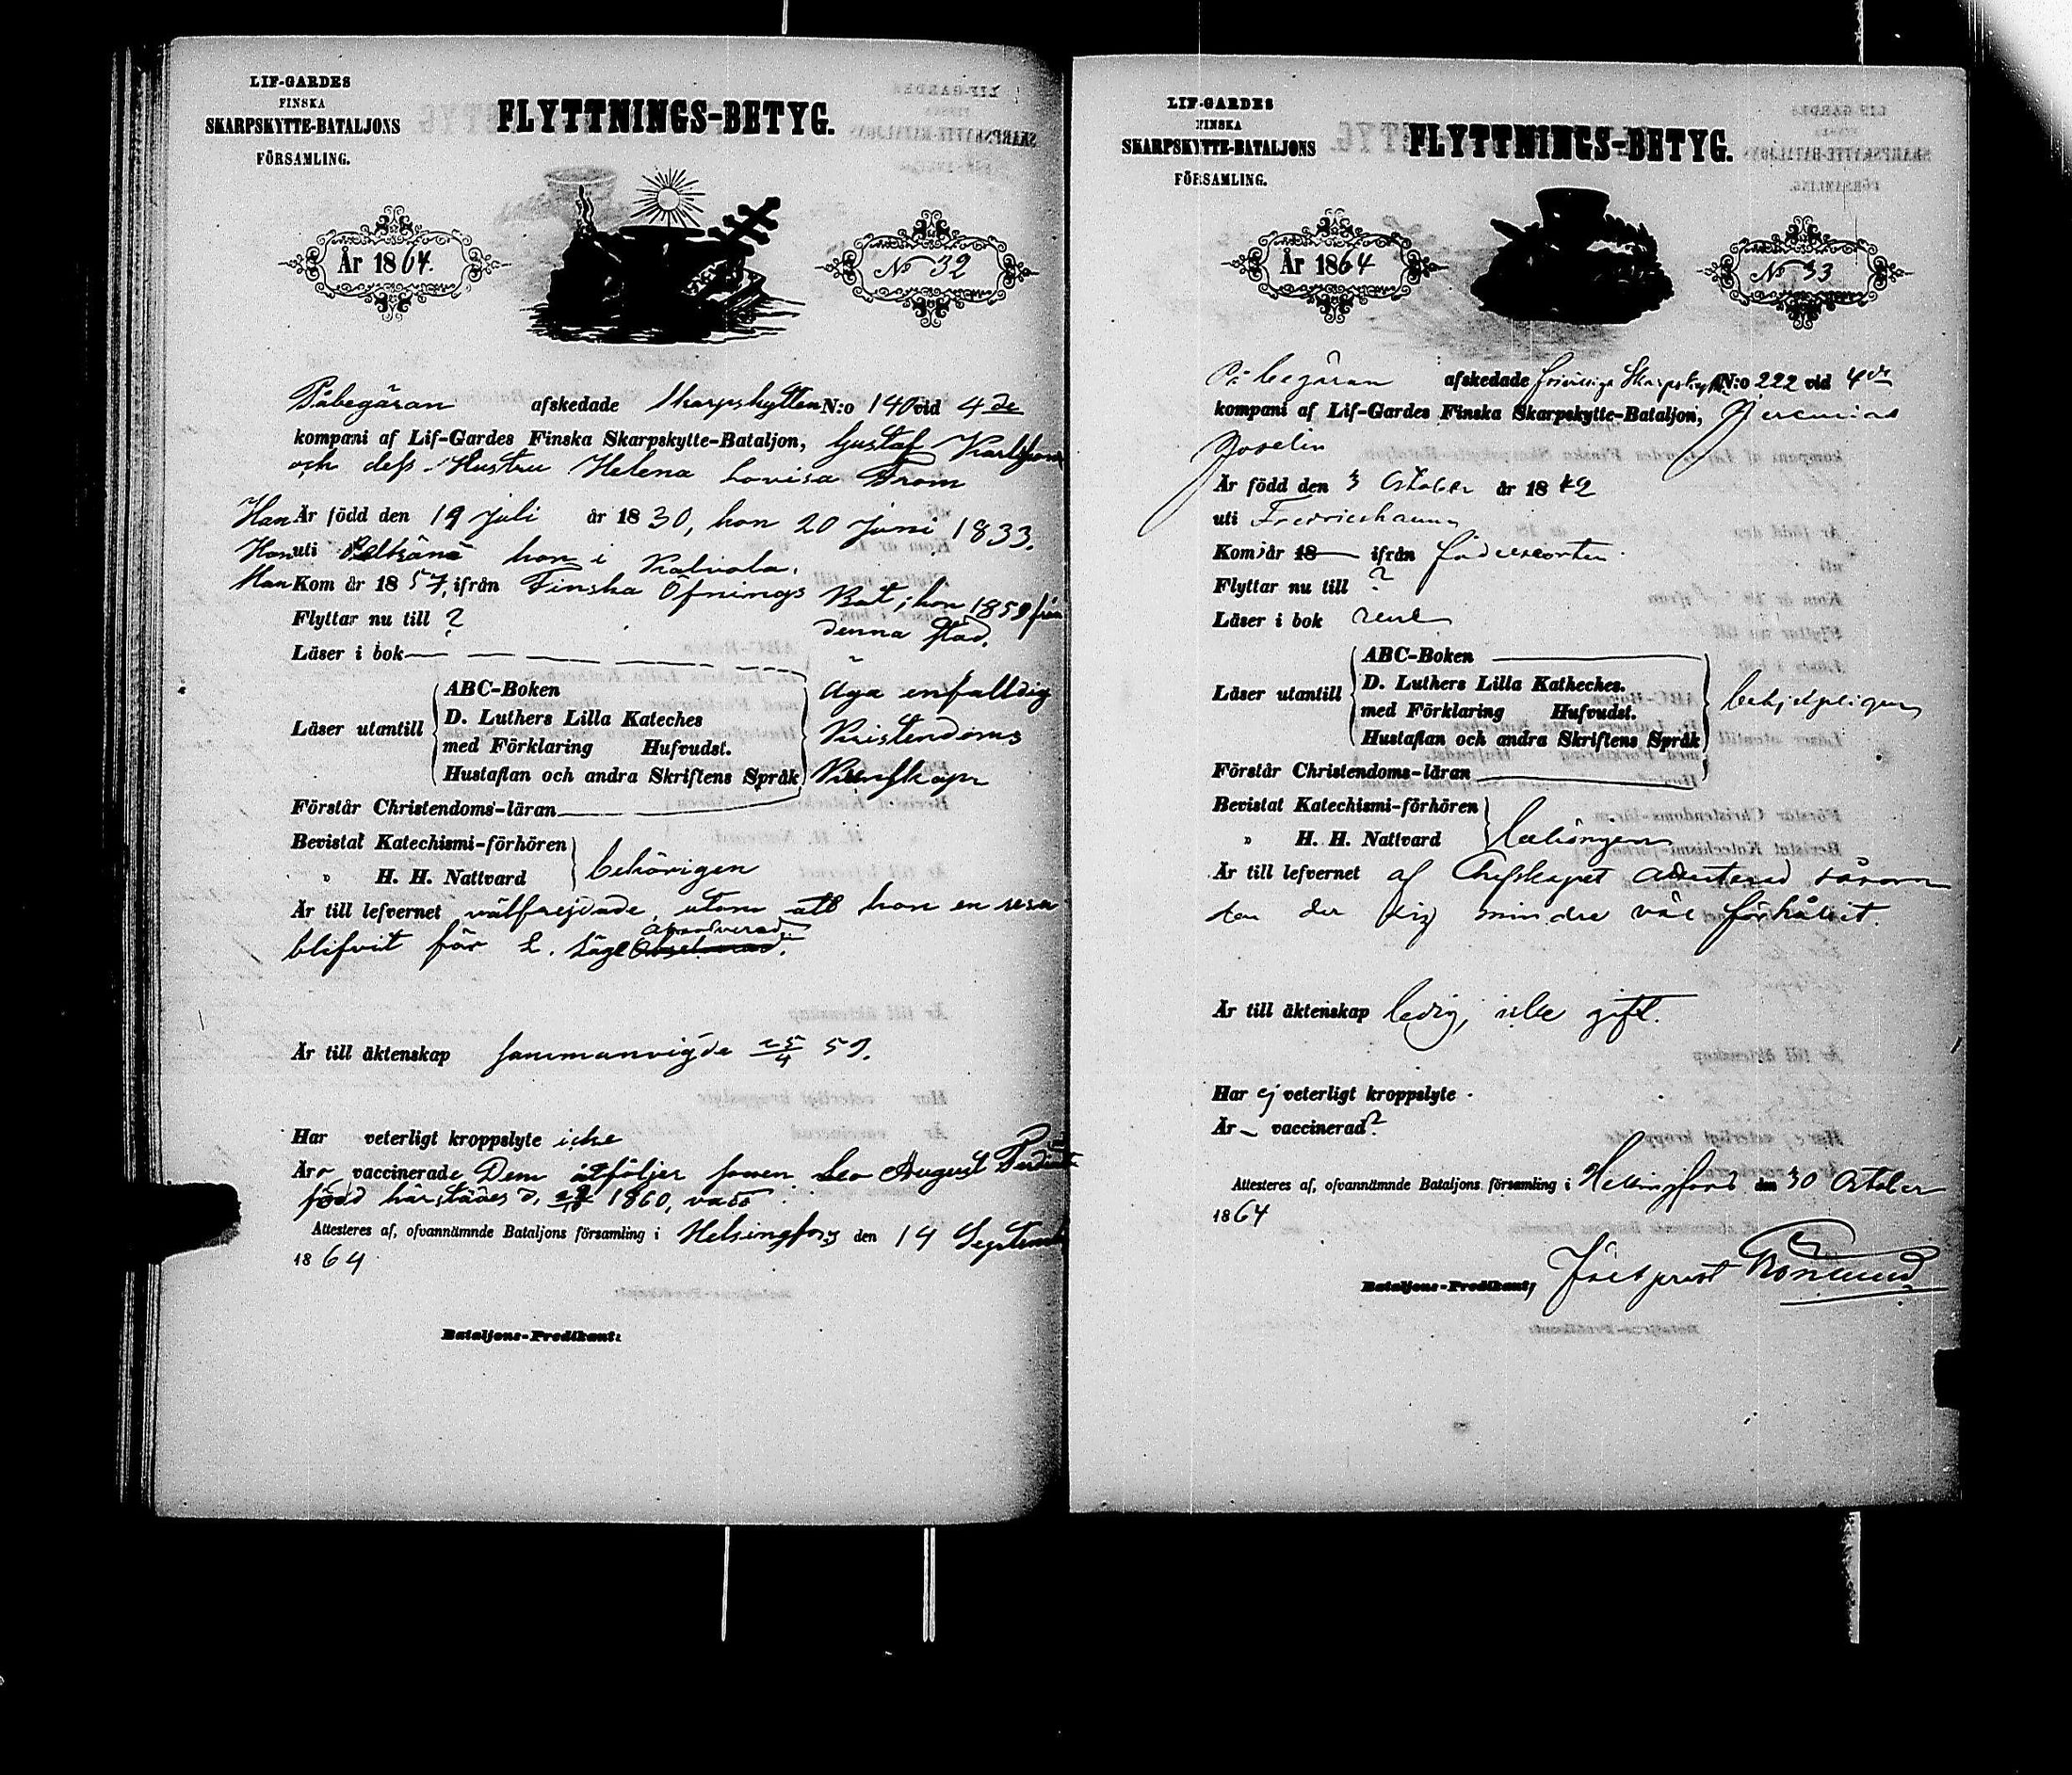 LIF-GARDES
FINSKA
SKARPSKYTTE-BATALJONS
FÖRSAMLING.
FLYTTNINGS-BETYG.
År 1864.
No 32
Påbegäran afskedade Skarpskytten N:o 140 vid 4de
kompani af Lif-Gardes Finska Skarpskytte-Bataljon, Gustaf Karlsson
och dess Hustru Helena Lovisa From
Han Är född den 19 Juli år 1830, hon 20 Juni 1833.
Han uti hon i Kalvola.
Han Kom år 1857, ifrån Finska Öfnings Bat; hon 1859 från
denna stad.
Flyttar nu till ?
Läser i bok
Läser utantill
ABC-Boken
D. Luthers Lilla Kateches
med Förklaring Hufvudst.
Hustaflan och andra Skriftens Språk
Äga enfalldig
Kristendoms
Kunskap
Förstår Christendoms-läran
Bevistat Katechismi-förhören
" H. H. Nattvard
behörigen
Är till lefvernet välfrejdade, utom att hon en resa
blifvit för 2.
Är till äktenskap sammanvigde 25/4 59.
Har veterligt kroppslyte icke
Äro vaccinerade Dem åtföljer sonen Leo August
född härstädes d. 1860, vacc
Attesteres af, ofvannämnde Bataljons församling i Helsingfors den 14 Septemb
1864
Bataljons-Predikant:
LIF-GARDES
FINSKA
SKARPSKYTTE-BATALJONS
FÖRSAMLING.
FLYTTNINGS-BETYG.
År 1864
No 33
På begäran afskedade frivillige Skarpskytten N:o 222 vid 4de
kompani af Lif-Gardes Finska Skarpskytte-Bataljon, Jeremias
Joselin
Är född den 3 October år 1842
uti Fredrikshamn
Kom år 18 ifrån födelseorten
Flyttar nu till ?
Läser i bok rent
Läser utantill
ABC-Boken
D. Luthers Lilla Katheches.
med Förklaring Hufvudst.
Hustaflan och andra Skriftens Språk
behjelpligen
Förstår Christendoms-läran
Bevistat Katechismi-förhören
" H. H. Nattvard
Är till lefvernet af Chefskapet såsom
den der sig mindre väl förhållit.
Är till äktenskap ledig, icke gift.
Har ej veterligt kroppslyte.
Är vaccinerad?
Attesteres af, ofvannämnde Bataljons församling i Helsingfors den 30 October
1864
Bataljons-Predikant,